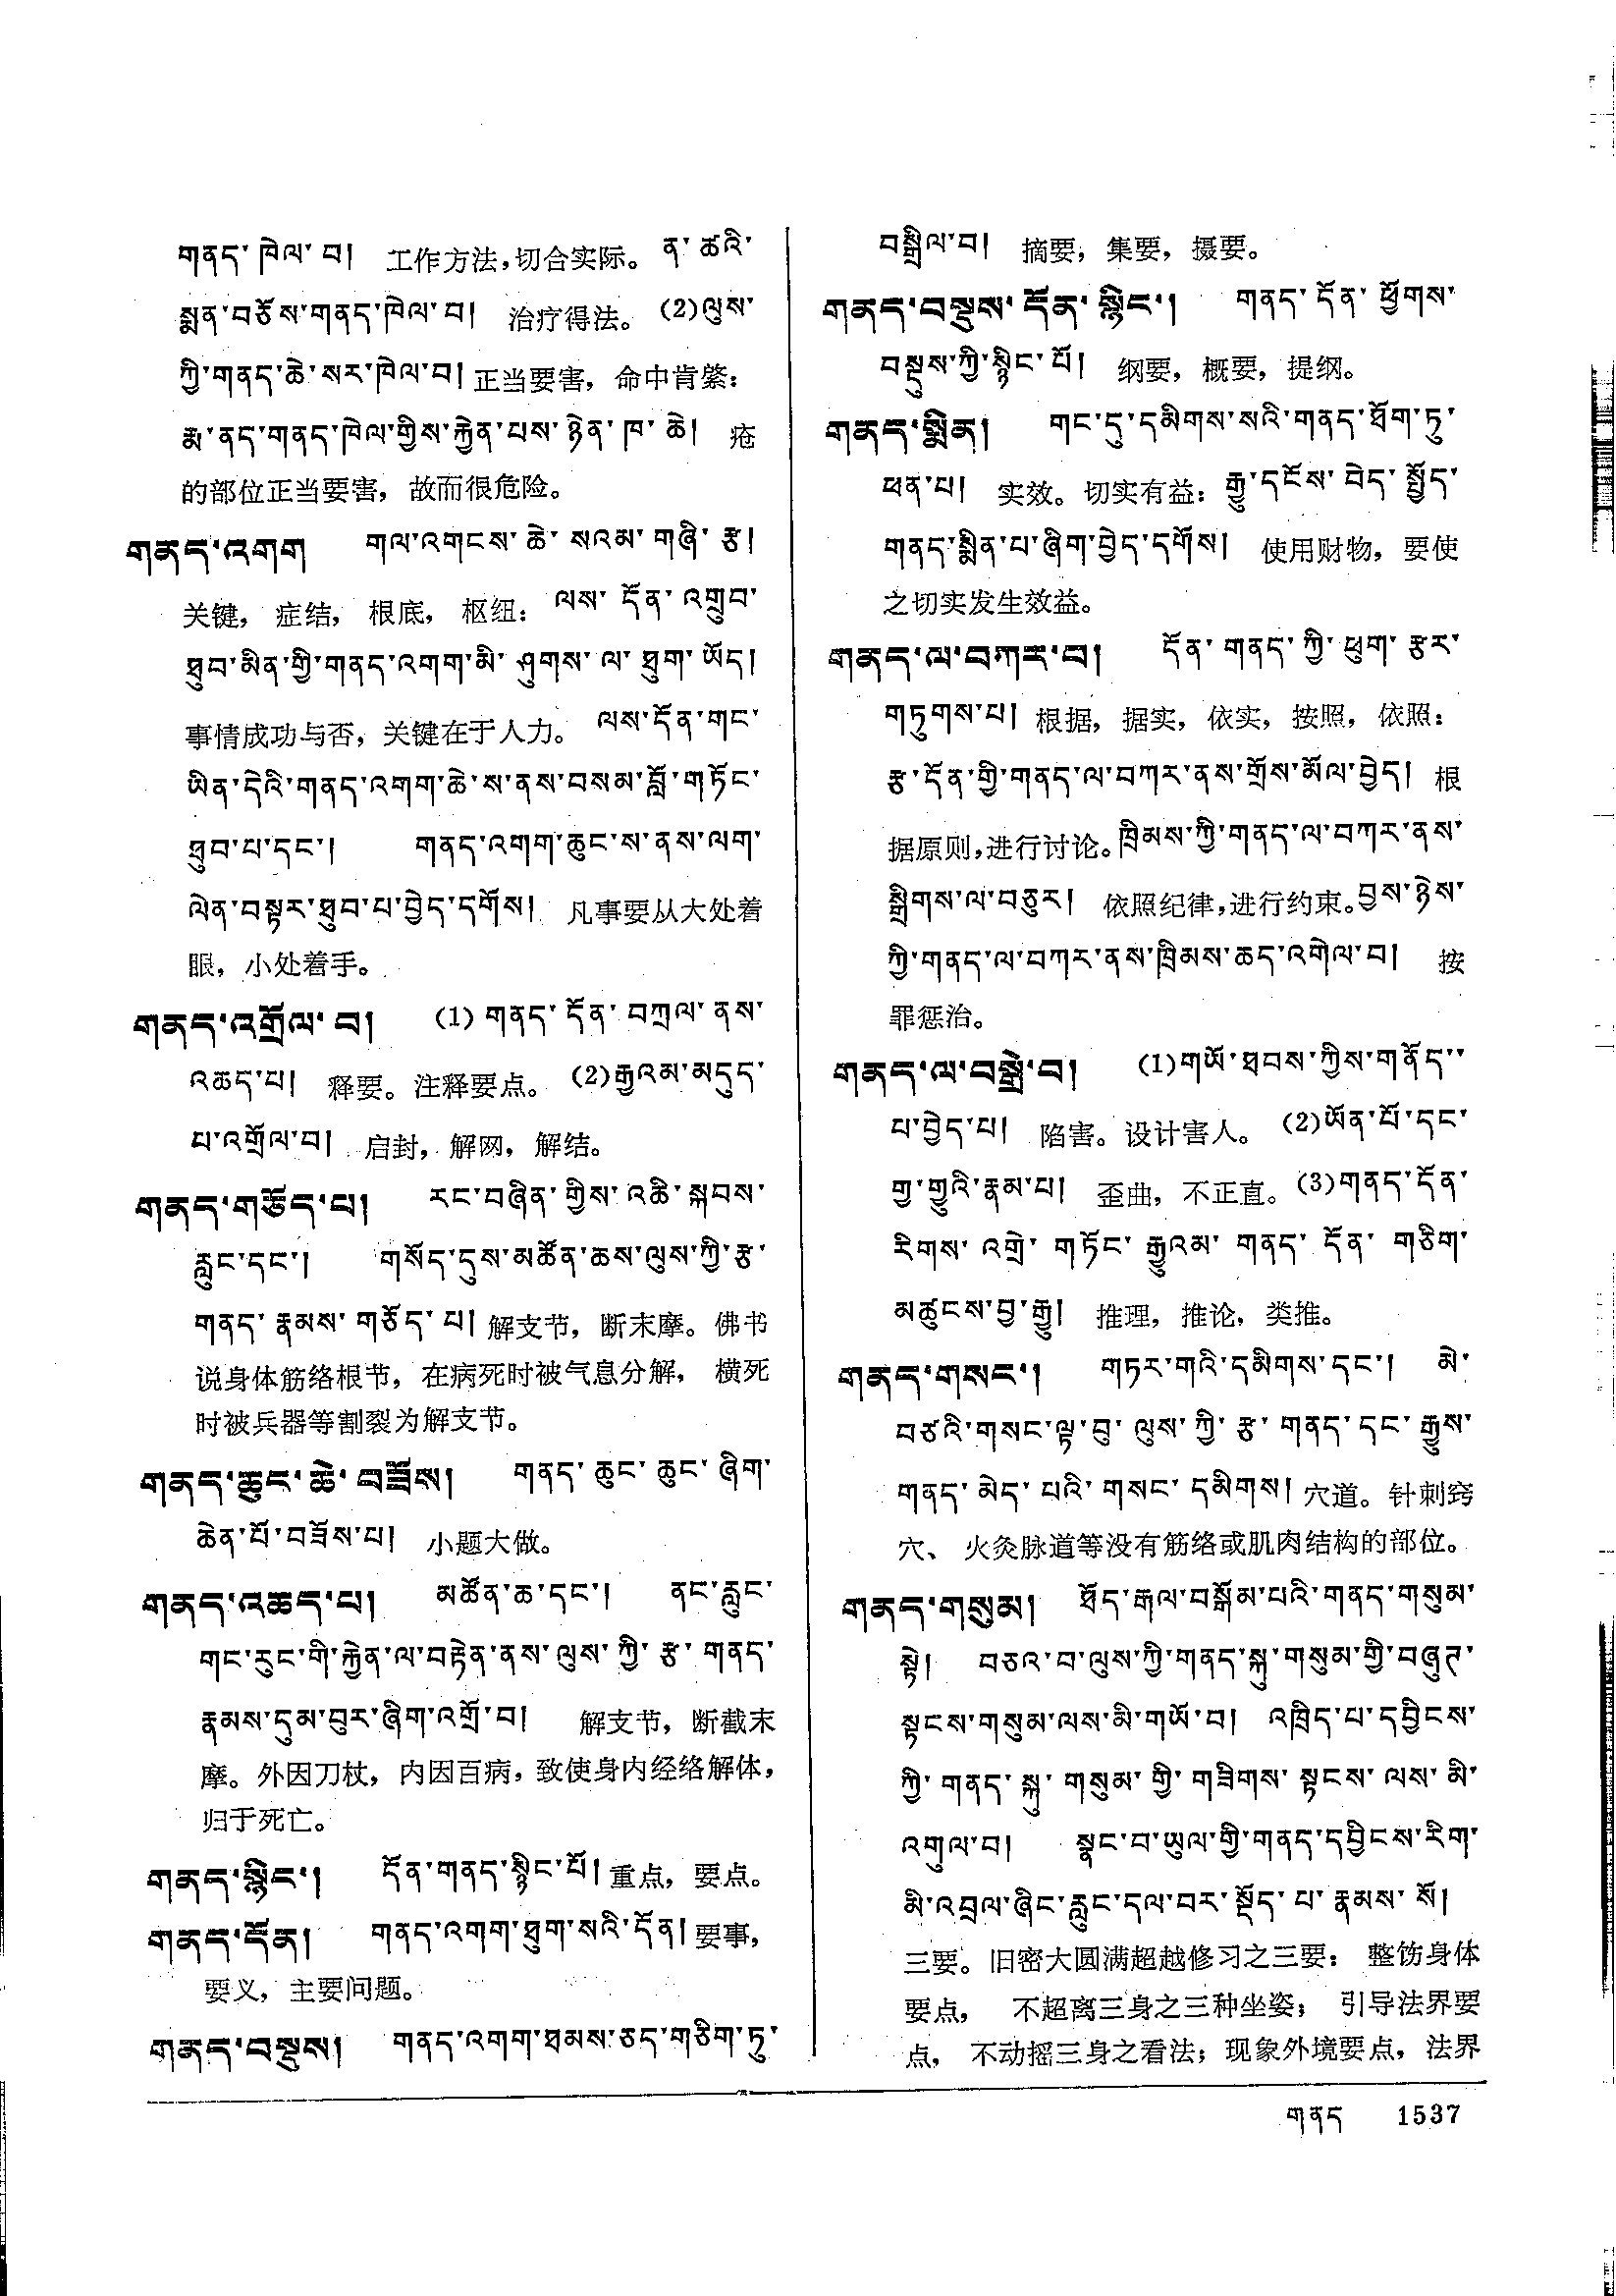 གནད་ ཁེལ་ བ། 工作方法,切合实际。 ན་ ཚའི་
སྨན་བཅོས་གནད་ཁེལ་བ། 治疗得法。 (2)ལུས་
ཀྱི་གནད་ཆེ་སར་ཁེལ་བ། 正当要害，命中肯綮：
རྨ་ནད་གནད་ཁེལ་གྱིས་རྐྱེན་པས་ཉེན་ཁ་ཆེ། 疮
的部位正当要害，故而很危险。
གནད་འགག གལ་འགངས་ཆེ་སའམ་གཞི་རྩ།
关键，症结，根底，枢纽：ལས་དོན་འགྲུབ་
ཐུབ་མིན་གྱི་གནད་འགག་མི་ཤུགས་ལ་ཐུག་ཡོད།
事情成功与否，关键在于人力。 ལས་དོན་གང་
ཡིན་དེའི་གནད་འགག་ཆེ་ས་ནས་བསམ་བློ་གཏོང་
ཐུབ་པ་དང་། གནད་འགག་ཆུང་ས་ནས་ལག་
ལེན་བསྟར་ཐུབ་པ་བྱེད་དགོས། 凡事要从大处着
眼，小处着手。
གནད་འགྲོལ་བ། (1) གནད་དོན་བཀྲལ་ནས་
འཆད་པ། 释要。注释要点。 (2)རྒྱའམ་མདུད་
པ་འགྲོལ་བ། 启封，解网，解结。
གནད་གཅོད་པ། རང་བཞིན་གྱིས་འཆི་སྐབས་
རླུང་དང་། གསོད་དུས་མཚོན་ཆས་ལུས་ཀྱི་རྩ་
གནད་རྣམས་གཅོད་པ། 解支节，断末摩。佛书
说身体筋络根节，在病死时被气息分解， 横死
时被兵器等割裂为解支节。
གནད་ཆུང་ཆེ་བཟོས། གནད་ཆུང་ཆུང་ཞིག་
ཆེན་པོ་བཟོས་པ། 小题大做。
གནད་འཆད་པ། མཚོན་ཆ་དང་། ནང་རླུང་
གང་རུང་གི་རྐྱེན་ལ་བརྟེན་ནས་ལུས་ཀྱི་རྩ་གནད་
རྣམས་དུམ་བུར་ཞིག་འགྲོ་བ། 解支节，断截末
摩。外因刀杖，内因百病，致使身内经络解体，
归于死亡。
གནད་སྙིང་། དོན་གནད་སྙིང་པོ། 重点，要点。
གནད་དོན། གནད་འགག་ཐུག་སའི་དོན། 要事，
要义，主要问题。
གནད་བསྡུས། གནད་འགག་ཐམས་ཅད་གཅིག་ཏུ་
བསྒྲིལ་བ། 摘要，集要，摄要。
གནད་བསྡུས་དོན་སྙིང་། གནད་དོན་ཕྱོགས་
བསྡུས་ཀྱི་སྙིང་པོ། 纲要，概要，提纲。
གནད་སྨིན། གང་དུ་དམིགས་སའི་གནད་ཐོག་ཏུ་
ཕན་པ། 实效。切实有益：རྒྱུ་དངོས་བེད་སྤྱོད་
གནད་སྨིན་པ་ཞིག་བྱེད་དགོས། 使用财物，要使
之切实发生效益。
གནད་ལ་བཀར་བ། དོན་གནད་ཀྱི་ཕུག་རྩར་
གཏུགས་པ། 根据，据实，依实，按照，依照：
རྩ་དོན་གྱི་གནད་ལ་བཀར་ནས་གྲོས་མོལ་བྱེད། 根
据原则,进行讨论。ཁྲིམས་ཀྱི་གནད་ལ་བཀར་ནས་
སྒྲིགས་ལ་བཅུར། 依照纪律,进行约束。བྱས་ཉེས་
ཀྱི་གནད་ལ་བཀར་ནས་ཁྲིམས་ཆད་འགེལ་བ། 按
罪惩治。
གནད་ལ་བསྒྲེ་བ། (1)གཡོ་ཐབས་ཀྱིས་གནོད་
པ་བྱེད་པ། 陷害。设计害人。 (2)ཡོན་པོ་དང་
གྱ་གྱུའི་རྣམ་པ། 歪曲，不正直。(3)གནད་དོན་
རིགས་འགྲེ་གཏོང་རྒྱུའམ་གནད་དོན་གཅིག་
མཚུངས་བྱ་རྒྱུ། 推理，推论，类推。
གནད་གསང་། གཏར་གའི་དམིགས་དང་། མེ་
བཙའི་གསང་ལྟ་བུ་ལུས་ཀྱི་རྩ་གནད་དང་རྒྱུས་
གནད་མེད་པའི་གསང་དམིགས། 穴道。针刺窍
穴、 火灸脉道等没有筋络或肌肉结构的部位。
གནད་གསུམ། ཐོད་རྒལ་བསྒོམ་པའི་གནད་གསུམ་
སྟེ། བཅའ་བ་ལུས་ཀྱི་གནད་སྐུ་གསུམ་གྱི་བཞུཊ་
སྟངས་གསུམ་ལས་མི་གཡོ་བ། འཁྲིད་པ་དབྱིངས་
ཀྱི་གནད་སྐུ་གསུམ་གྱི་གཟིགས་སྟངས་ལས་མི་
འགུལ་བ། སྣང་བ་ཡུལ་གྱི་གནད་དབྱིངས་རིག་
མི་འབྲལ་ཞིང་རླུང་དལ་བར་སྡོད་པ་རྣམས་སོ།
三要。旧密大圆满超越修习之三要： 整饬身体
要点， 不超离三身之三种坐姿； 引导法界要
点， 不动摇三身之看法；现象外境要点，法界
གནད 1537